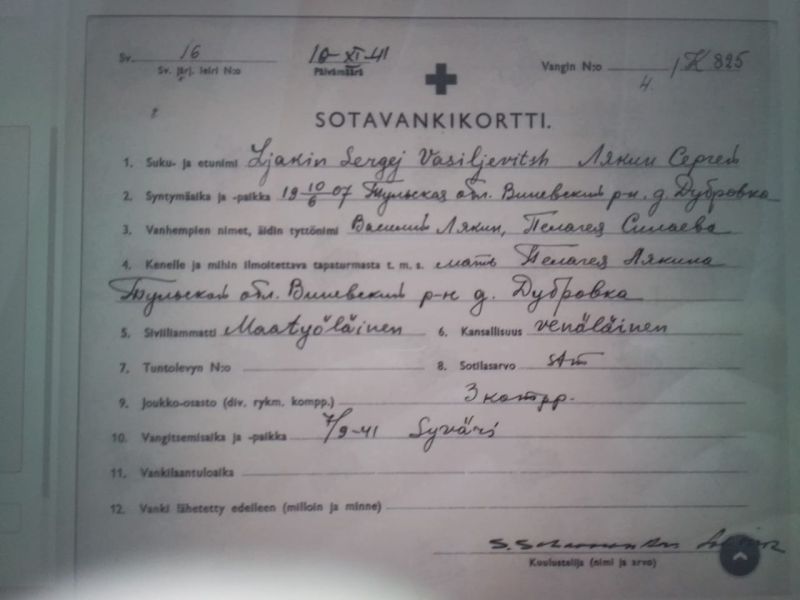 Sv. 16 10 XI-41 Vangin N:o 4. K 825
Sv. järj. leiri N:o Päivämäärä
SOTAVANKIKORTTI.
1. Suku- ja etunimi Ljakin Sergej Vasiljevitsh Лякин Сергей
2. Syntymäaika ja -paikka 19 10/6 07 Тульская обл. Виневский рн. д. Дубровка
3. Vanhempien nimet, äidin tyttönimi Василий Лякин, Пелагея Силаева
4. Kenelle ja mihin ilmoitettava tapaturmasta t. m. s. мать Пелагея Лякина
Тульской обл. Виневский р-н д. Дубровка
5. Siviiliammatti Maatyöläinen 6. Kansallisuus venäläinen
7. Tuntolevyn N:o 8. Sotilasarvo stm
9. Joukko-osasto (div. rykm. kompp.) 3 kompp.
10. Vangitsemisaika ja -paikka 7/9-41 Syväri
11. Vankilaantuloaika
12. Vanki lähetetty edelleen (milloin ja minne)
Kuulustelija (nimi ja arvo)